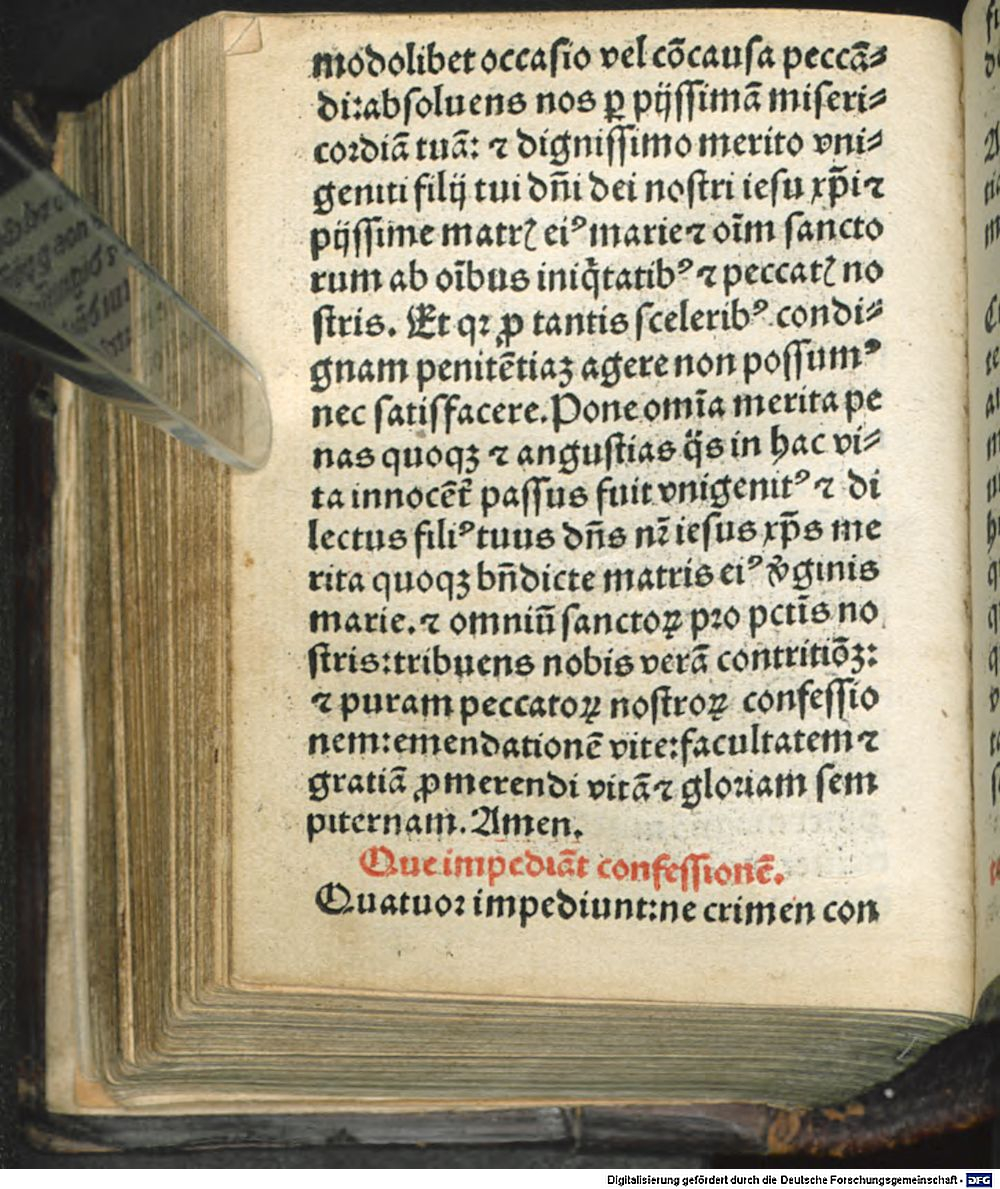 modolibet occasio vel cōcausa peccā⸗
di:absoluens nos ꝑ pijssimā miseri⸗
cordiā tuā: ⁊ dignissimo merito vni⸗
geniti filij tui dn̄i dei nostri iesu xp̄i ⁊
pijssime matrꝭ eiꝰ marie ⁊ oīm sancto
rum ab oībus iniq̄tatibꝰ ⁊ peccatꝭ no
stris. Et qꝛ ꝓ tantis sceleribꝰ condi⸗
gnam penitētiaꝫ agere non possumꝰ
nec satisfacere. Pone omīa merita pe
nas quoqꝫ ⁊ angustias q̈s in hac vi⸗
ta innocēt᷑ passus fuit vnigenitꝰ ⁊ di
lectus filiꝰ tuus dn̄s nr̄ iesus xp̄s me
rita quoqꝫ bn̄dicte matris eiꝰ v̾ginis
marie. ⁊ omniū sanctoꝝ pro pctīs no
stris:tribuens nobis verā contritiōꝫ:
⁊ puram peccatoꝝ nostroꝝ confessio
nem:emendationē vite:facultatem ⁊
gratiā ꝓmerendi vitā ⁊ gloriam sem
piternam. Amen.
Que impediāt confessionē.
Quatuor impediunt:ne crimen con
Digitalisierung gefördert durch die Deutsche Forschungsgemeinschaft - DFG